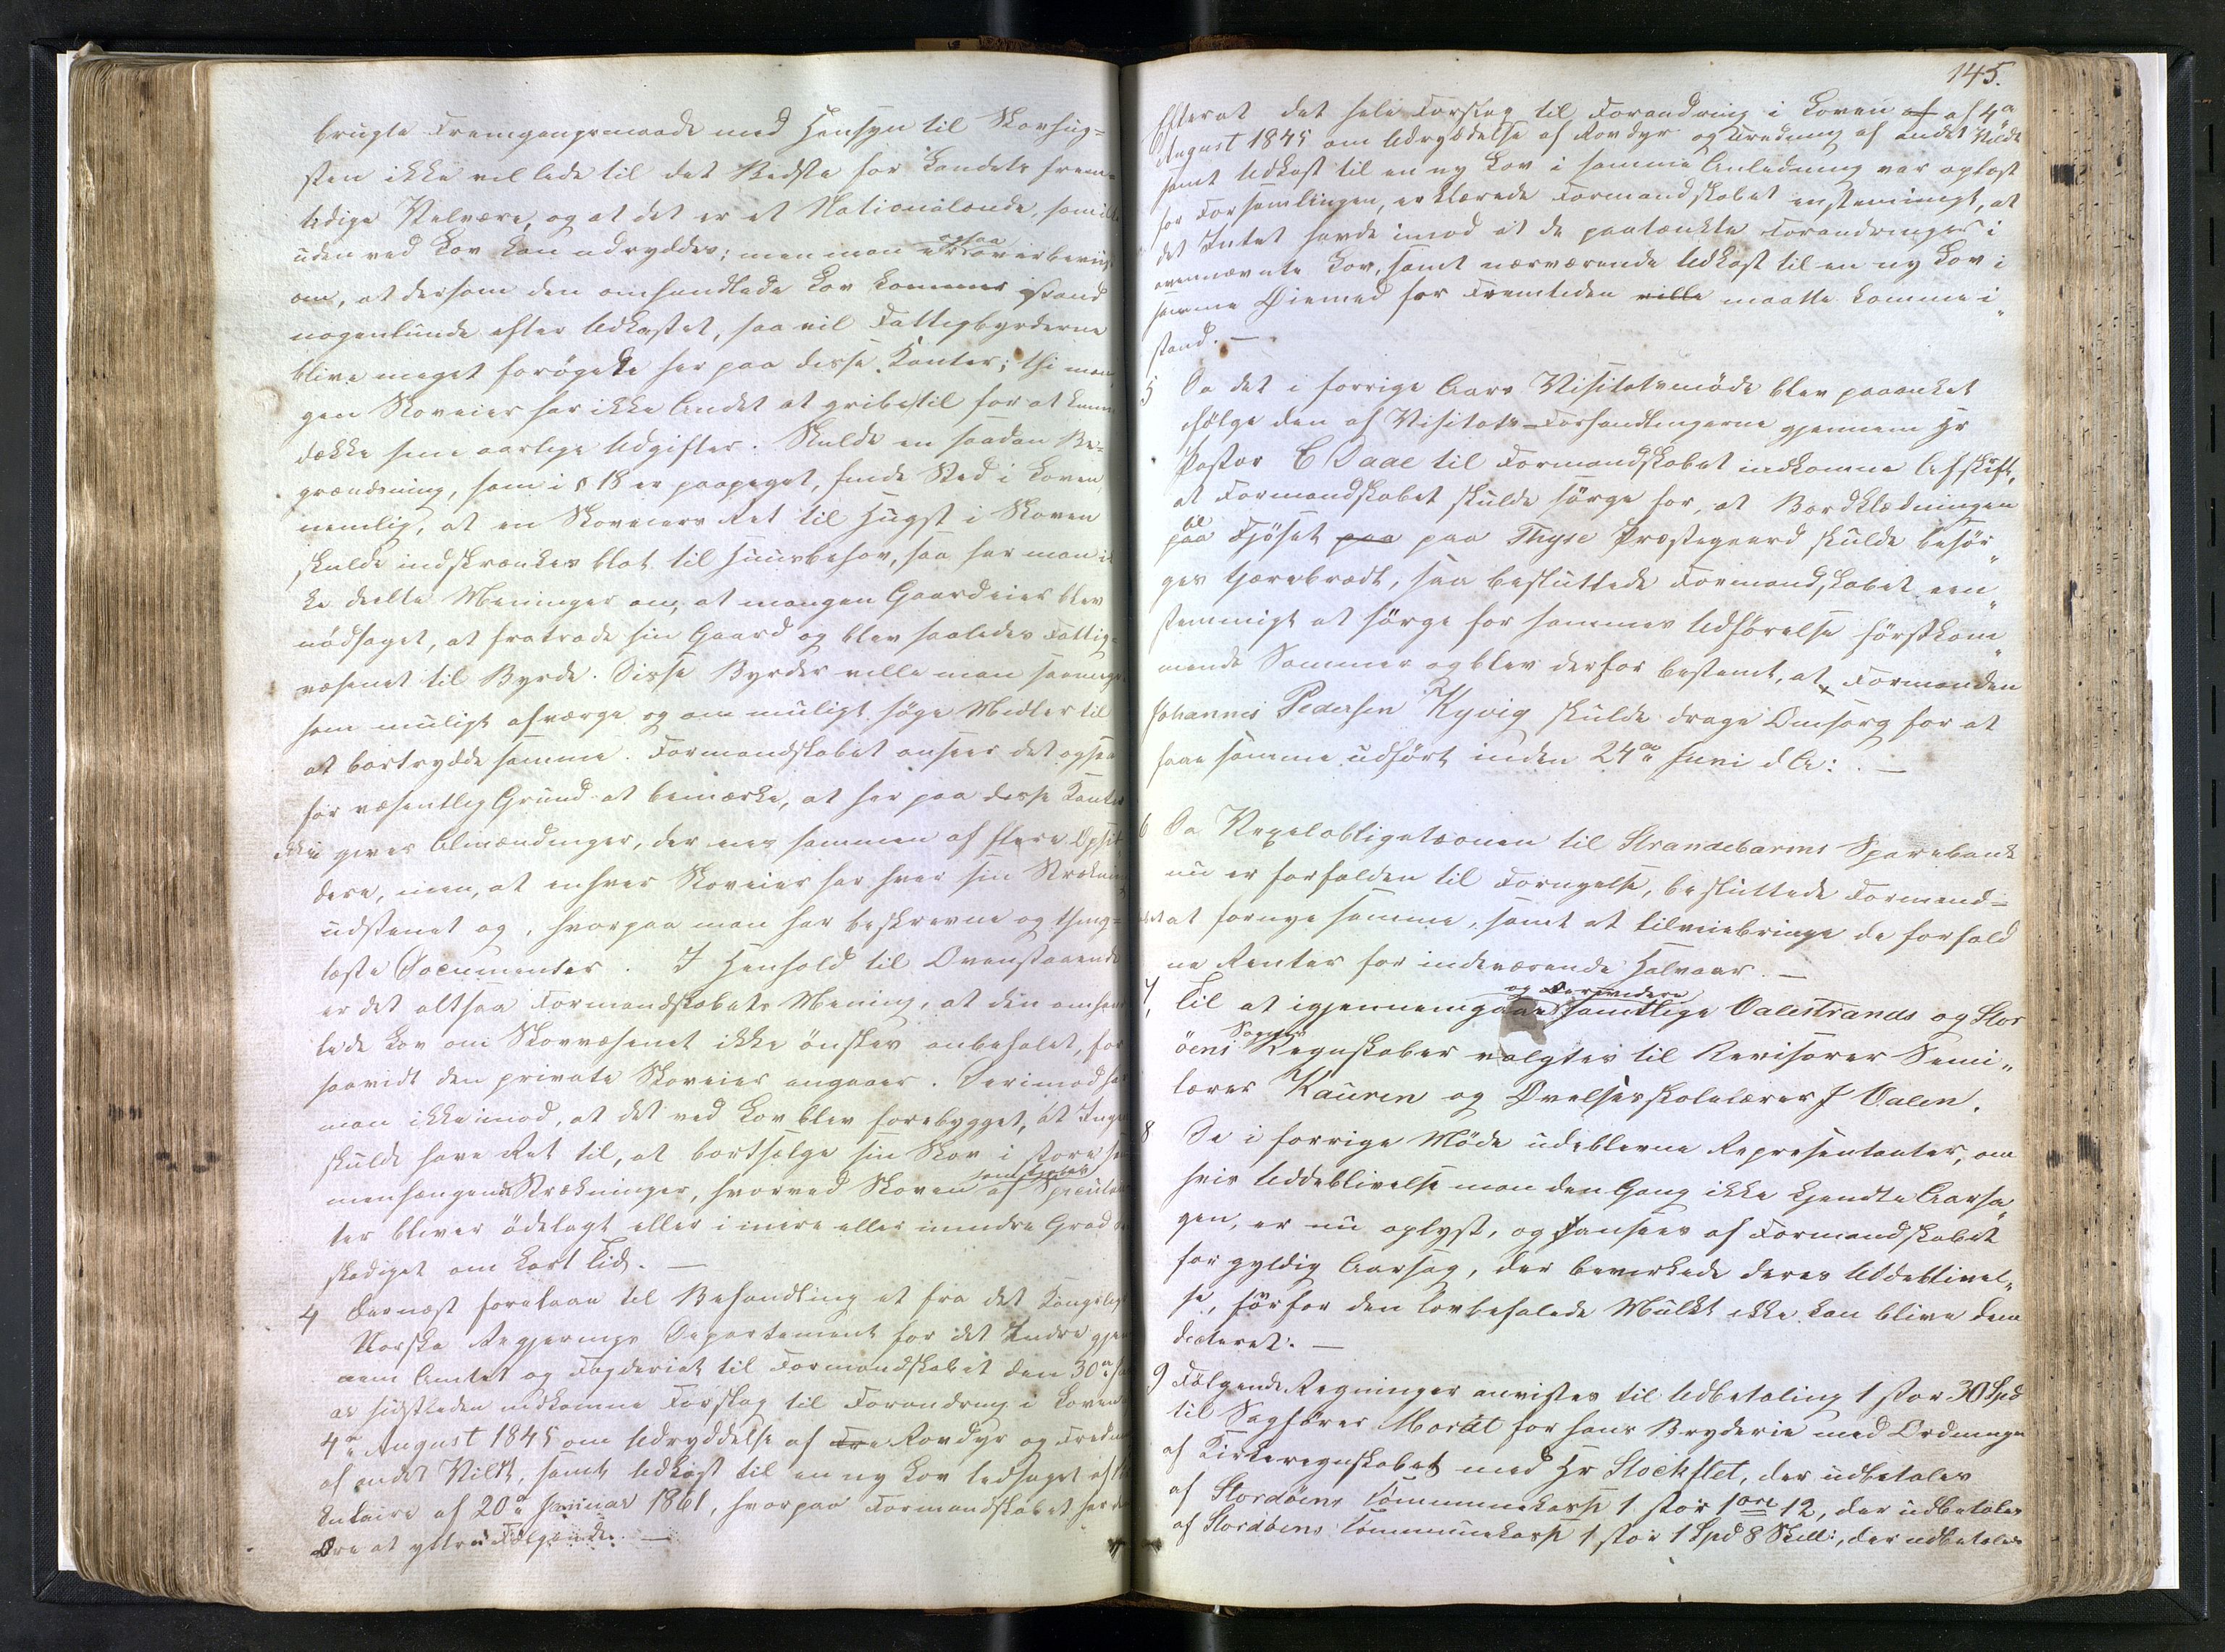 brugte Fremgangsmaade med Hensyn til Skovhug=
sten ikke vil lede til det Bedste for Landets frem=
tidige Velvære, og at det er et Nationalonde, som ikke
uden ved Lov kan udryddes; men man er ogsaa overbeviist
om, at dersom den omhandlede Lov kommer istand
nogenlunde efter Udkastet, saa vil Fattigbyrderne
blive meget forögede her paa disse Kanter; thi man
gen Skoveier har ikke Andet at gribe til for at kunne
dække sine aarlige Udgifter. Skulde en saadan Be=
grændsning, som i § 18 er paapeget, finde Sted i Loven,
nemlig, at en Skoveiers Ret til Hugst i Skoven
skulde indskrænkes blot til Huusbehov, saa har man ik
ke deelte Meninger om, at mangen Gaardeier blev
nödsaget, at fratræde sin Gaard og blev saaledes Fattig=
væsenet til Byrde. Disse Byrder ville man saameget
som muligt afværge og om muligt söge Midler til
at bortrydde samme. Formandskabet ansees det ogsaa
for væsentlig Grund at bemærke, at her paa disse Kanter
ikke gives Almændinger, der eies sammen af flere Opsid
dere, men, at enhver Skoveier har hver sin Strækning
udstenet og, hvorpaa man har beskrevne og thing=
læste Documenter. I Henhold til Ovenstaaende
er det altsaa Formandskabets Mening, at den omhand
lede Lov om Skovvæsenet ikke önskes anbefalet, for
saavidt den private Skoveier angaaer. Derimod har
man ikke imod, at det ved Lov blev forebygget, at Ingen
skulde have Ret til, at bortsælge sin Skov i store sam
menhængende Strækninger, hvorved Skoven af Speculan
ter bliver ödelagt eller i mere eller mindre Grad be
skadiget om kort Tid. —
4 Dernæst foretages til Behandling et fra det Kongelige
Norske Regjerings Departement for det Indre gjen
nem Amtet og Fogderiet til Formandskabet den 30te
sidstleden indkomne Forslag til Forandring i Loven
4de August 1845 om Udryddelse af Rovdyr og Fredning
af andet Vildt, samt Udkast til en ny Lov ledsaget af
kulaire af 20de Januar 1861, hvorpaa Formandskabet har den
Ære at yttre Fölgende. —
145.
Efterat det hele Forslag til Forandring i Loven af 4de
August 1845 om Udryddelse af Rovdyr og Fredning af andet Vildt
samt Udkast til en ny Lov i samme Anledning var oplæst
for Forsamlingen, erklærede Formandskabet enstemmigt, at
det Intet havde imod at de paatænkte Forandringer i
ovennævnte Lov, samt nærværende Udkast til en ny Lov i
samme Öiemed for Fremtiden ville maatte komme i
stand. —
5 Da det i forrige Aars Visitatsmöde blev paaanket
ifölge den af Visitats-Forhandlingerne gjennem Hr
Pastor C Daae til Formandskabet indkomne Afskrift,
at Formandskabet skulde sörge for, at Bordklædningen
til Fjöset paa paa Thyse Præstegaard skulde besör
ges tjærebrædt, saa besluttede Formandskabet een
stemmigt at sörge for sammes Udförelse förstkom
mende Sommer og blev derfor bestemt, at Formanden
Johannes Pedersen Kyvig skulde drage Omsorg for at
faae samme udfört inden 24de Juni d A: —
6 Da Vexelobligationen til Strandebarms Sparebank
nu er forfalden til Fornyelse, besluttede Formand=
skabet at fornye samme, samt at tilveiebringe de forfald
ne Renter for indeværende Halvaar. —
7, Til at igjennemgaae og Revidere samtlige Valestrands og Stor
öens Sognes Regnskaber valgtes til Revisorer Semi„
lærer Kauren og Övelsesskolelærer J Valen.
8 De i forrige Möde udeblevne Repræsentanter, om
hvis Uddeblivelse man den Gang ikke kjendte Aarsa
gen, er nu oplyst, og ansees af Formandskabet
for gyldig Aarsag, der bevirkede deres Uddeblivel„
se, hvorfor den lovbefalede Mulkt ikke kan blive dem
dicteret. —
9 Fölgende Regninger anvistes til Udbetaling 1 stor 30 Spd
til Sagförer Mordt for hans Bryderie med Ordningen
af Kirkeregnskabet med Hr Stockflet, der udbetales
af Stordöens Communekasse 1 stor 1 ort 12, der udbetales
af Stordöens Communekasse 1 stor 1 Spd 8 Skill:, der udbetales